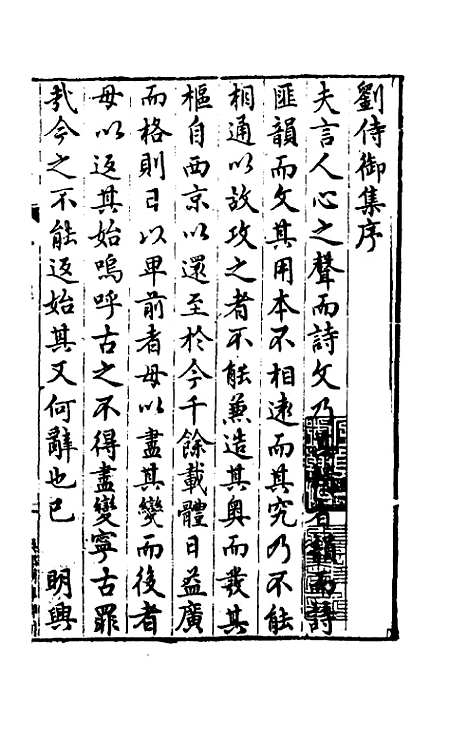 劉侍御集序
夫言人心之聲而詩文乃其者韻而詩
匪韻而文其用本不相遠而其究乃不能
相通以故攻之者不能兼造其奧而我其
樞自西京以還至於今千餘載體日益廣
而格則日以卑前者毋以盡其變而後者
毋以返其始嗚呼古之不得盡變寧古罪
哉今之不能返始其又何辭也已 明興